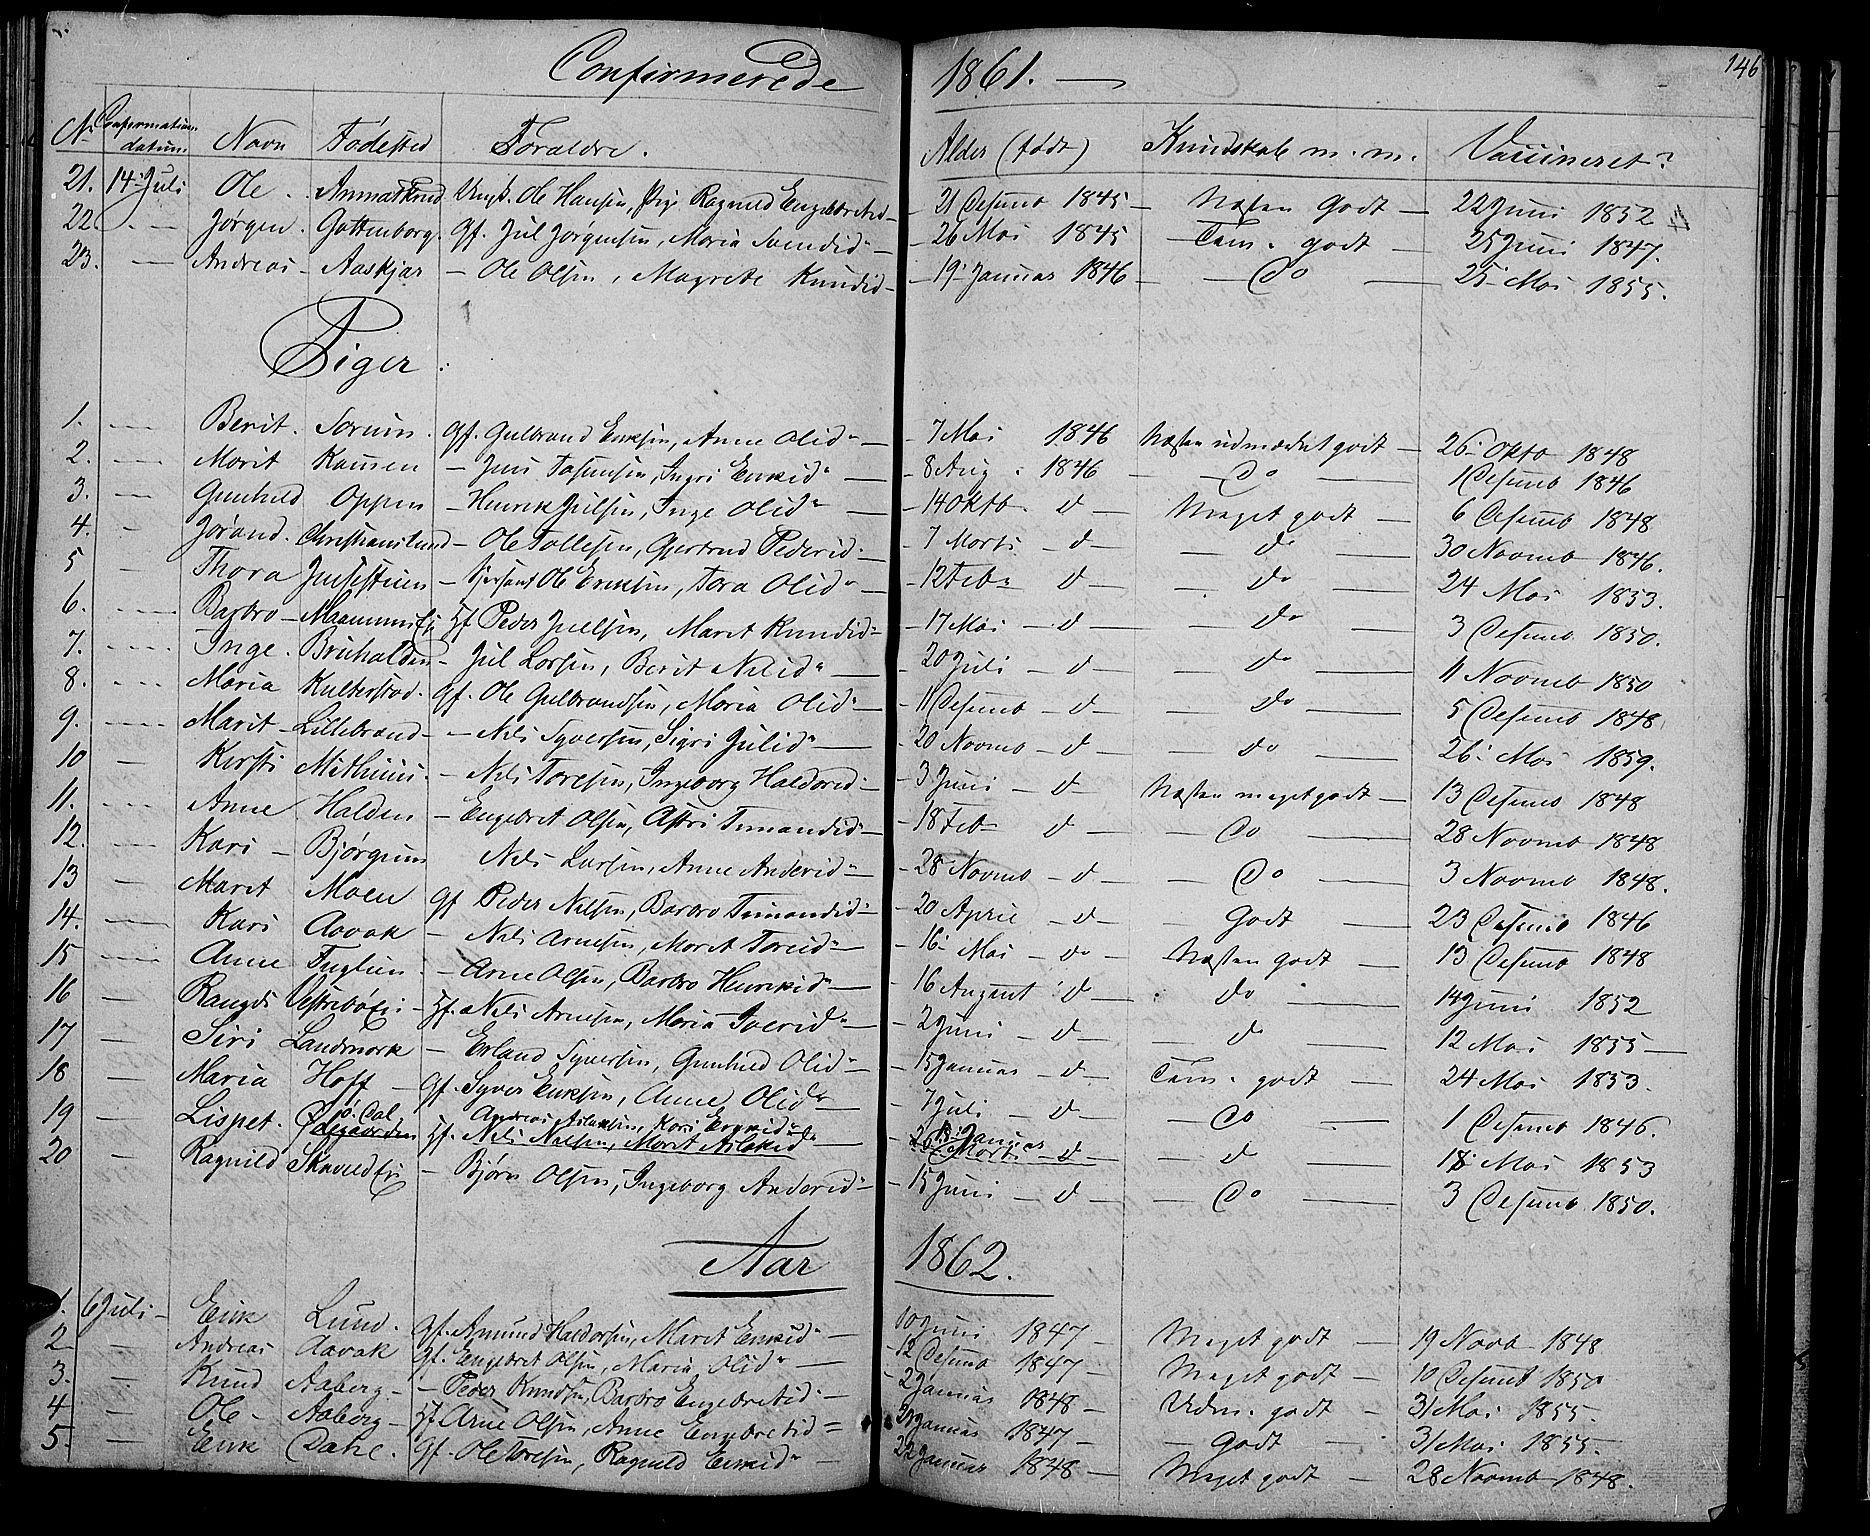 146
Confirmerede 1861.
No Confirmations datum Navn Fødested Forældre. Alder (født) Kundskab m. m. Vaccineret?
21. 14 Juli Ole Ole Hansen, Pige Ragnild 21 Desemb 1845 Næsten Godt 22 Juni 1852
22. Jørgen. Gottenborg. gf. Jul Jørgensen, Maria 26 Mai 1845 Tem. godt 25 Juni 1847.
23. Andreas Aaskjær Ole Olsen, Magrete Knudsd 19 Januar 1846 Do 25 Mai 1855.
Piger.
1. Berit. Sorum. gf. Gulbrand Eriksen, Anne Olsd 7 Mai 1846 Næsten udmærket godt 26 Okto 1848
2. Marit Ingri Eriksd 8 Aug. 1846 Do 1 Desemb 1846
3. Gunhild Oppen Henrik Julsen, Inge Olsd 14 Oktb. d Meget godt 6 Desemb 1848
4. Jørand. Ole Tollefsen, Gjertrud Pedersd 7 Marts d do 30 Novemb 1846.
5 Thora Ole Eriksen, Tora Olsd 12 Feb d do 24 Mai 1853.
6. Barbro Peder Juelsen, Marit Knudsd 17 Mai d do 3 Desemb 1850.
7. Inge. Bruhalden Jul Larsen, Berit Nilsd 20 Juli d do 11 Novemb 1850
8. Maria Kulterstad. gf. Ole Gulbrandsen, Maria Olsd 11 Desemb d do 5 Desemb 1848
9. Marit Lillebrand Nils Syversen, Sigri Julsd 20 Novemb d do 26 Mai 1859.
10 Kirsti Nils Toresen, Ingeborg Haldorsd 3 Juni d Næsten meget godt 13 Desemb 1848
11. Anne Halden Engebret Olsen, Astri 18 Feb d Do 28 Novemb 1848
12. Kari Bjørgum Nils Larsen, Anne Andersd 28 Novemb d Do 3 Novemb 1848.
13 Marit Moen gf Peder Nilsen, Barbro 20 April d Godt 23 Desemb 1846
14. Kari Aavak Nils Arnesen, Marit Toresd 16 Mai do Næsten godt 13 Desemb 1848
15 Anne Fuglum Arne Olsen, Barbro Henriksd 16 August d do 14 Juni 1852
16 Rangdi Nils Arnesen, Maria Iversd 2 Juni d d 12 Mai 1855
17 Siri Landmark Erland Syversen, Gunhild Olsd 15 Januar d Tem. godt 24 Mai 1853.
18 Maria Hoff gf. Syver Eriksen, Anne Olsd 7 Juli d Do 1 Desemb 1846.
ø. Dal Andreas Aslaksen, Kari Januar
19 Lispet. Ødegaarden Nils Nilsen, Marit Aslaksd Marts d d 18 Mai 1853
20 Ragnild Bjørn Olsen, Ingeborg Andersd 15 Juni d Do 3 Desemb 1850.
Aar 1862.
1. 6 Juli Erik Lund. gf. Amund Haldorsen, Marit Eriksd 10 Juni 1847 Meget godt 19 Novb 1848
2 Andreas Aavak gf. Engebret Olsen, Maria Olsd 12 Desemb 1847 Meget godt 10 Desemb 1850
3. Knud Aaberg Peder Knudsen, Barbro Engebretsd 2 Januar 1848 Udm. godt 31 Mai 1855.
4 Ole Aaberg Arne Olsen, Anne Engebretsd Januar 1847 Godt 31 Mai 1855.
5. Erik Dahl. gf. Ole Toresen, Ragnild Eriksd 22 Januar 1848 Meget godt 28 Novemb 1848.